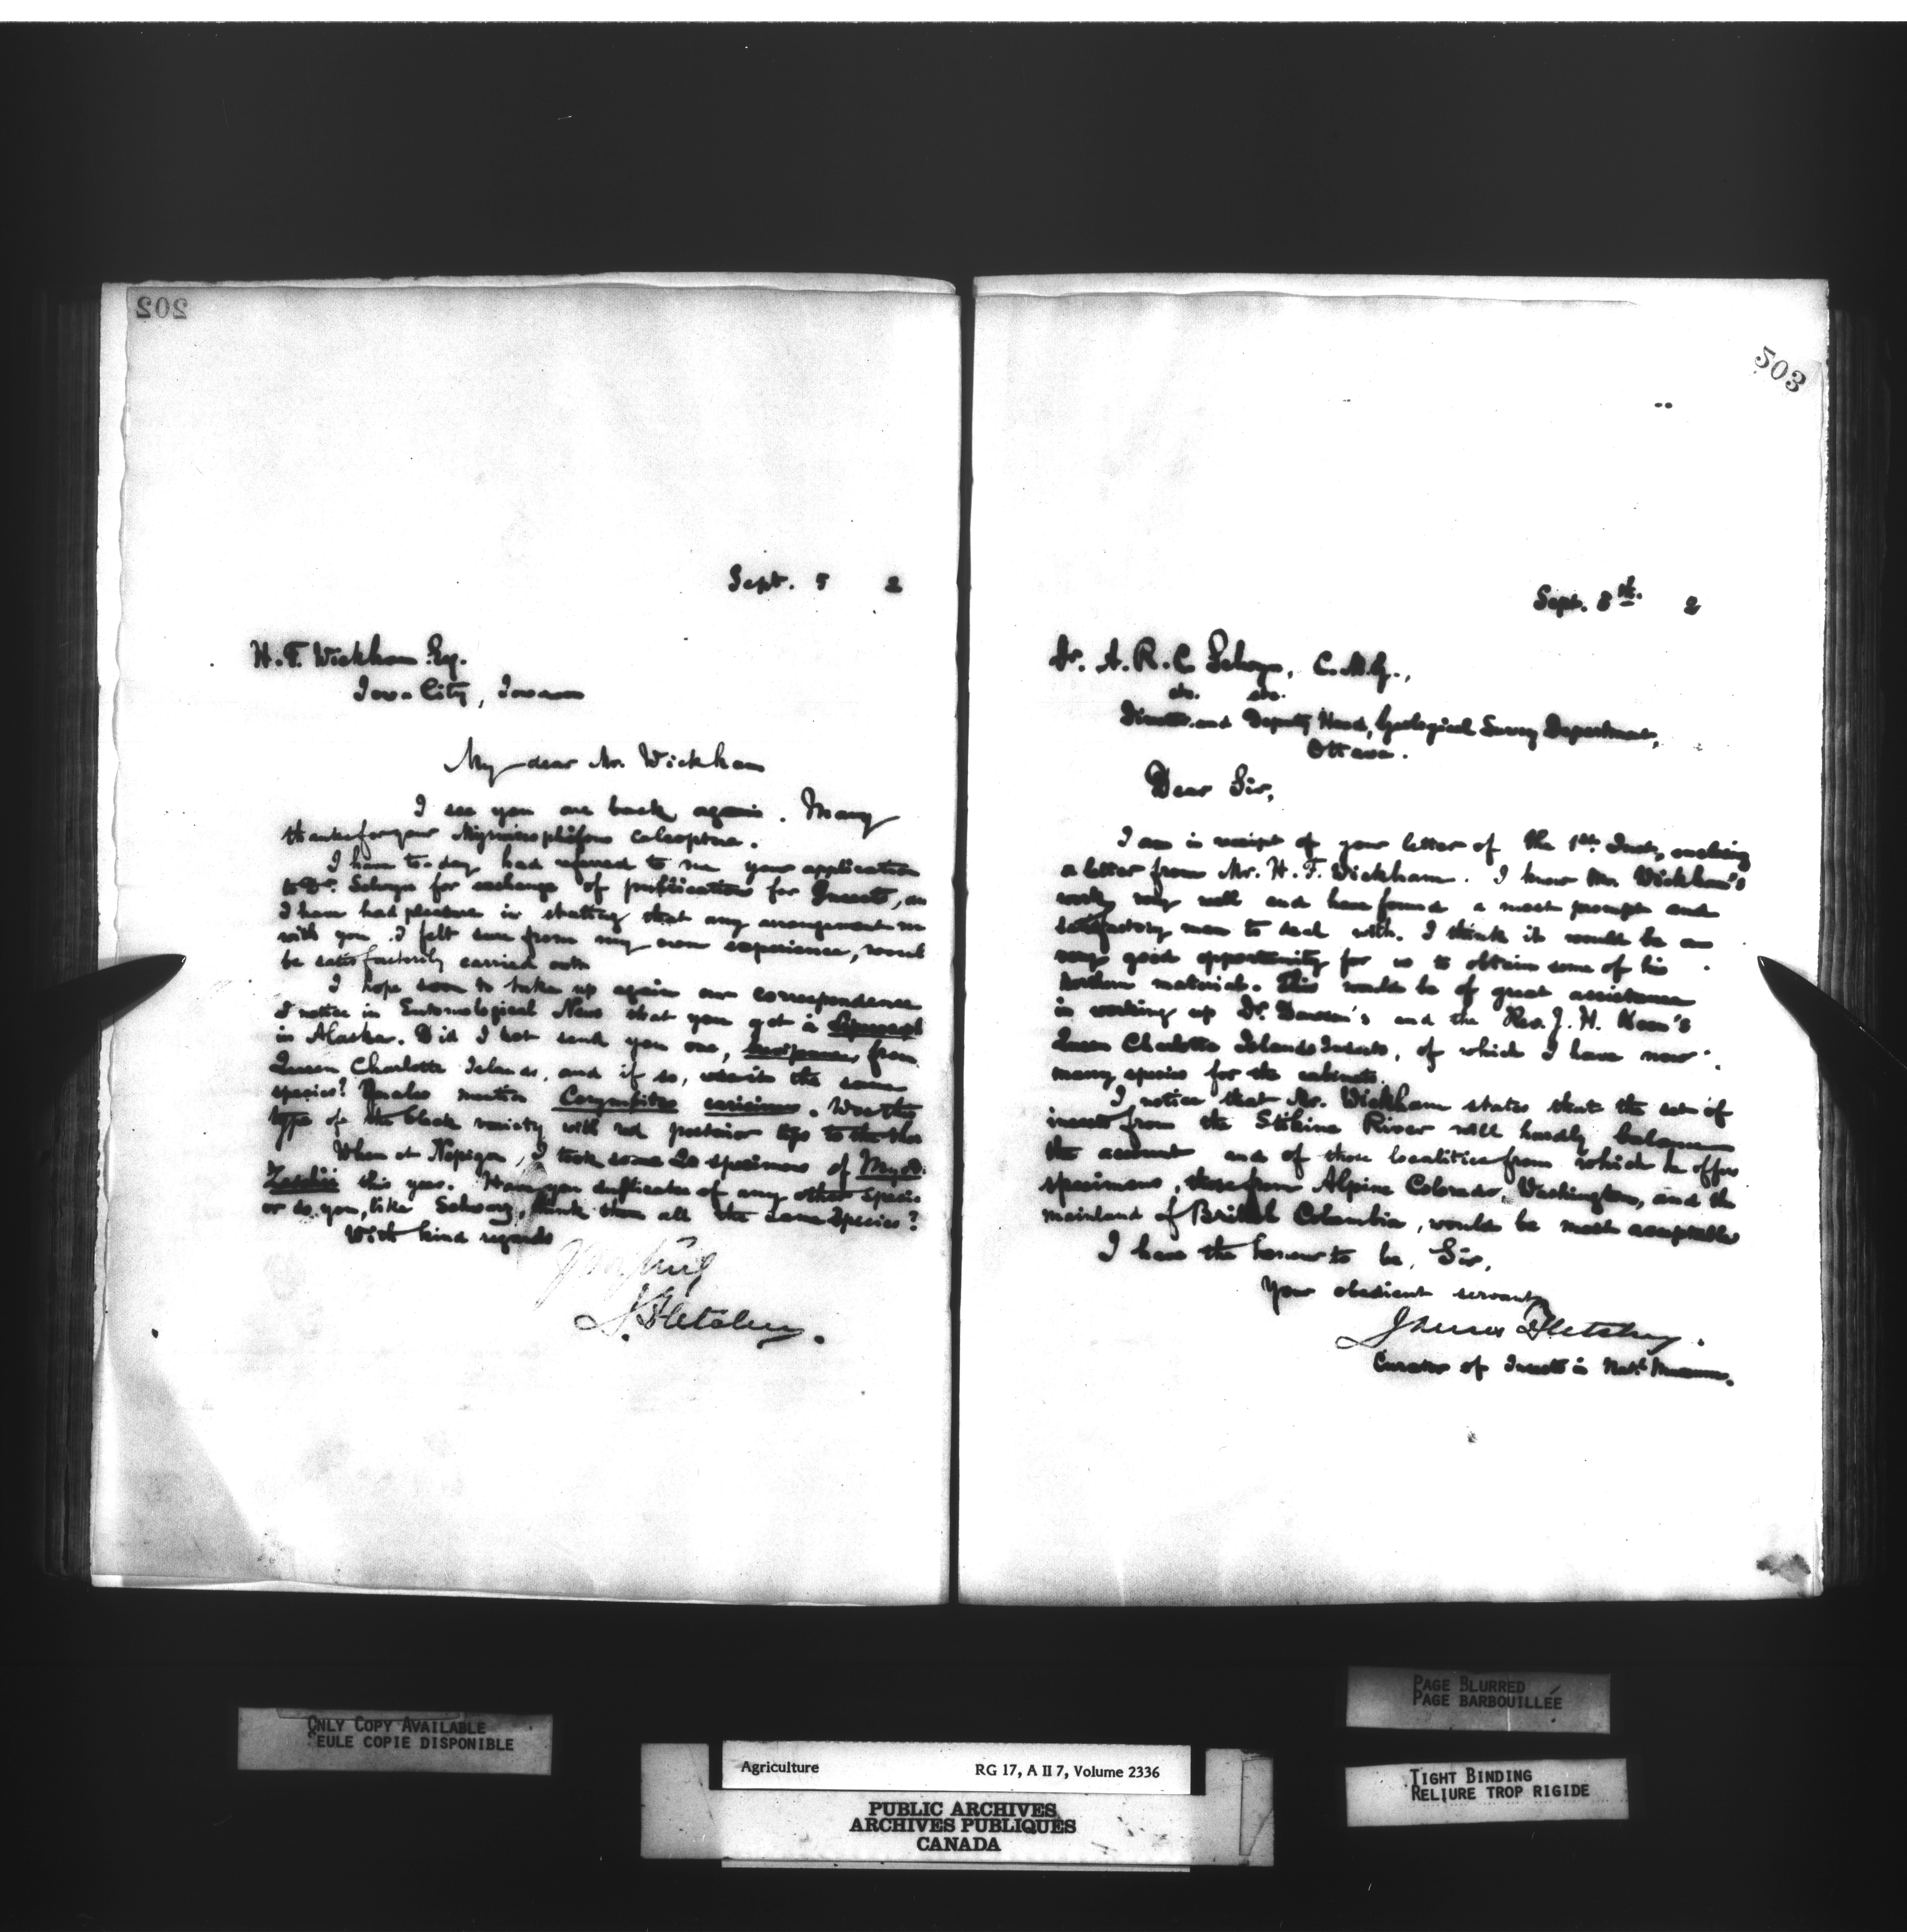 202
Sept. 5 2
H. F. Wickham Esq.
Iowa City, Iowa
My dear Mr. Wickham
I see you are back again. Many
thanks for your coleoptera.
I have to-day had referred to me your application
to Dr. Selwyn for exchange of publications for Insects, an
I have had pleasure in stating that any arrangement m
with you I felt sure from my own experience, would
be satisfactorily carried out
I hope soon to take up again our correspondence
I notice in Entomological News that you got a
in Alaska. Did I not send you one, from
Queen Charlotte Islands, and if so, was it the same
species? mention Corymbites
type of the black variety with red posterior tips to the thor
When at Nepigon, I took some 20 specimens of
this year. Have you duplicates of any other species
or do you, like Schwarz, think them all the same species?
With kind regards
J. Fletcher.
503
Sept. 8th. 2
Dr. A. R. C. Selwyn, C.M.G.,
&c. &c.
Director and Deputy Head, Geological Survey Department,
Ottawa.
Dear Sir,
I am in receipt of your letter of the 1st Inst, enclosing
a letter from Mr. H. F. Wickham. I know Mr. Wickham's
work very well and have found a most prompt and
satisfactory man to deal with. I think it would be a
very good opportunity for us to obtain some of his
northern material. This would be of great assistance
in working up Dr. Dawson's and the Rev. J. H. Keen's
Queen Charlotte Islands Insects, of which I have now
many species for the cabinets.
I notice that Mr. Wickham states that the set of
insects from the Stikine River will hardly balance
the account and of those localities from which he offers
specimens, those from Alpine Colorado, Washington, and the
mainland of British Columbia, would be most acceptable
I have the honour to be, Sir,
Your obedient servant
James Fletcher.
Curator of Insects in Natl. Museum.
ONLY COPY AVAILABLE
SEULE COPIE DISPONIBLE
PAGE BLURRED
PAGE BARBOUILLÉE
Agriculture RG 17, A II 7, Volume 2336
TIGHT BINDING
RELIURE TROP RIGIDE
PUBLIC ARCHIVES
ARCHIVES PUBLIQUES
CANADA